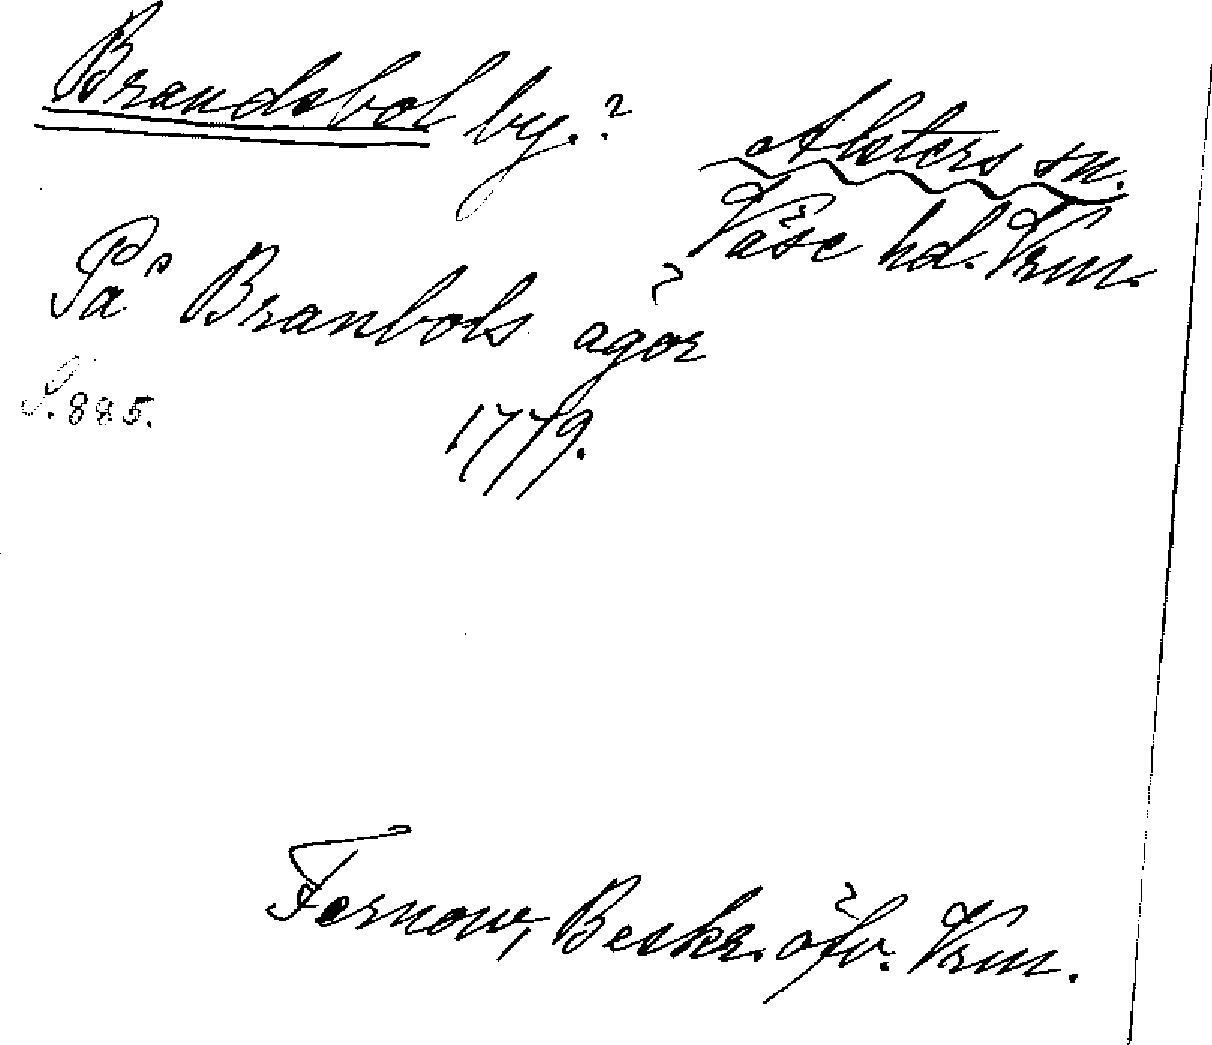 Brandsbol by.?
Alsters sn.
Väse hd. Vrm.
På Branbols ägor
S. 885.
1779.
Fernow, Beskr. öfv. Vrm.